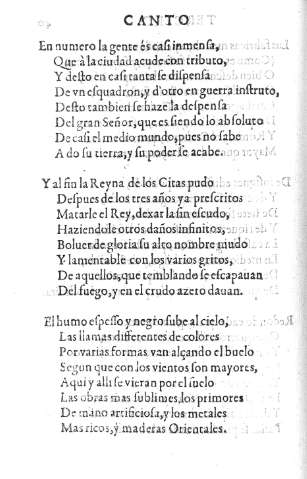 CANTO
En numero la gente és casi inmensa,
Que à la ciudad acude con tributo,
Y desto en casi tanta se dispensa
De vn esquadron, y d'otro en guerra instruto,
Desto tambien se haze la despensa
Del gran Señor, que es siendo lo absoluto
De casi el medio mundo, pues no sabe
A do su tierra, y su poder se acabe.
Y al fin la Reyna de los Citas pudo
Despues de los tres años ya prescritos
Matarle el Rey, dexar la sin escudo,
Haziendole otros daños infinitos,
Boluer de gloria su alto nombre ñudo
Y lamentable con los varios gritos,
De aquellos, que temblando se escapauan
Del fuego, y en el crudo azero dauan.
El humo espesso y negro sube al cielo,
Las llamas differentes de colores
Por varias formas van alçando el buelo
Segun que con los vientos son mayores,
Aqui y alli se vieran por el suelo
Las obras mas sublimes, los primores
De mano artificiosa, y los metales
Mas ricos, y maderas Orientales.